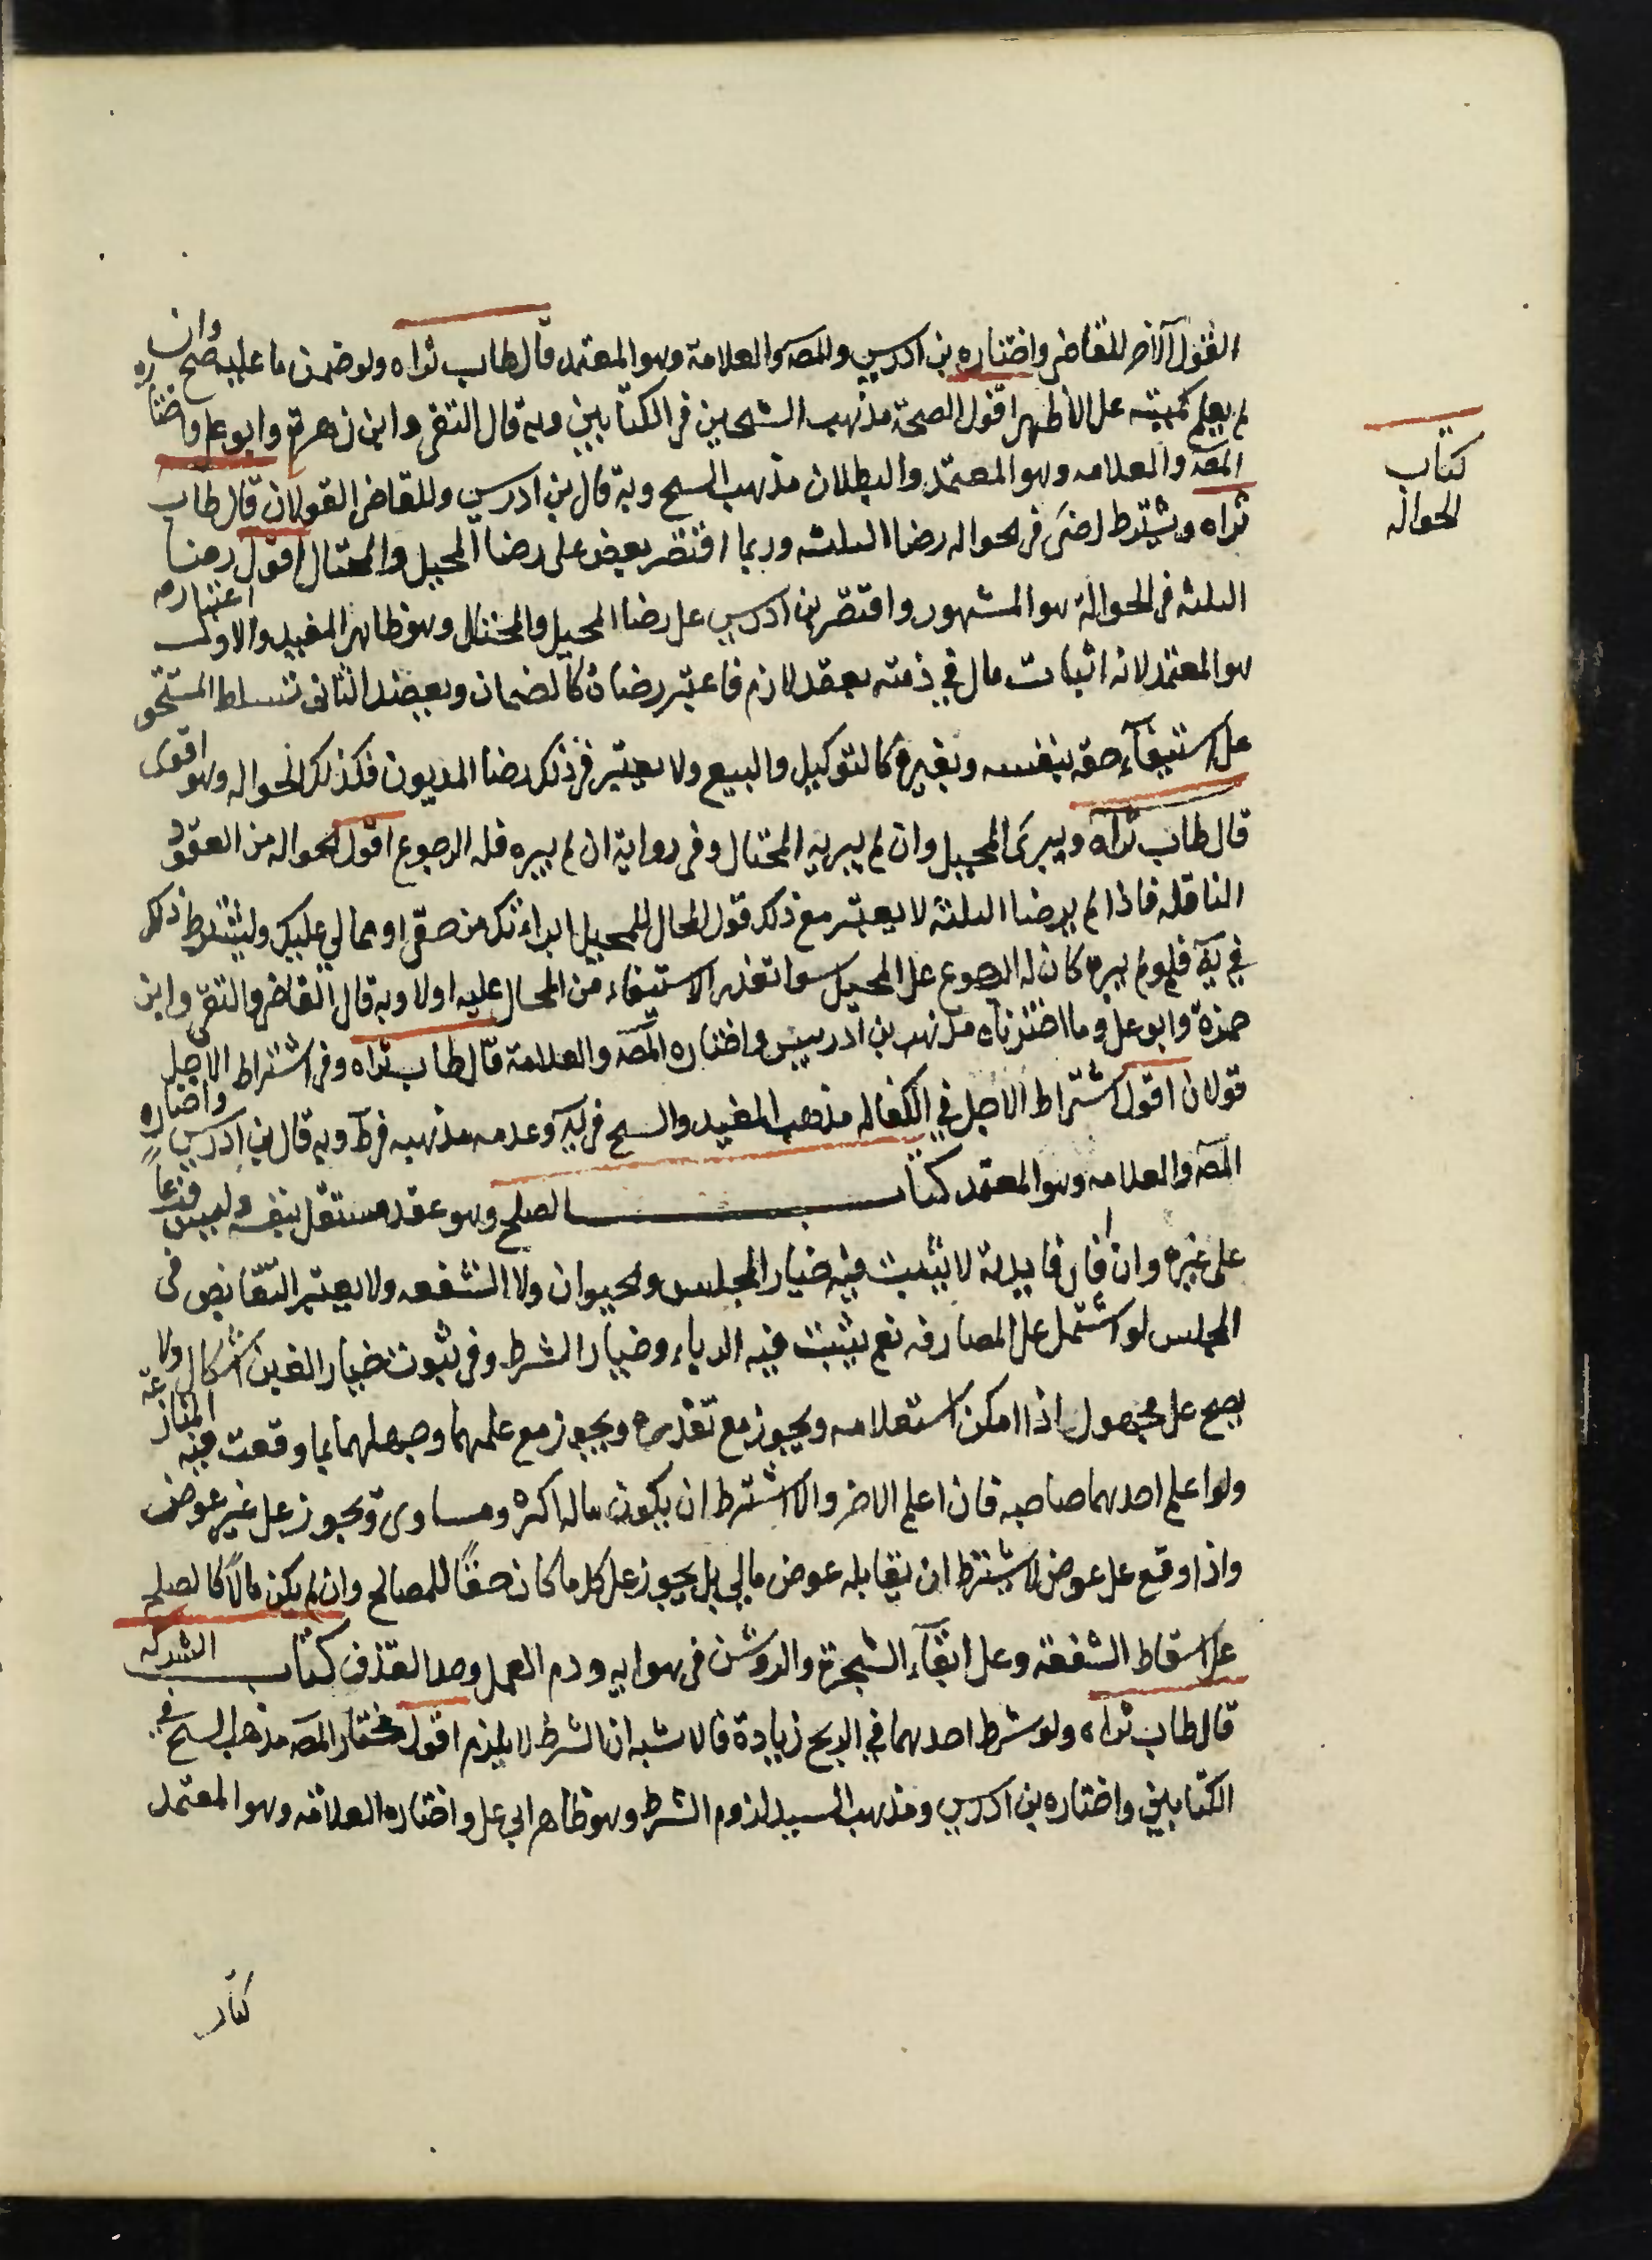 القول الاخر للقاضى واختاره بن ادريس والمصه والعلامة وهو المعتمد قال طاب ثراه ولو ضمن ما عليه صح وان
لم يعلم كميته على الاظهر اقول الصحة مذهب الشيخين فى الكتابين وبه قال التقى وابن زهرة وابو على واختاره
المصه والعلامه وهو المعتمد والبطلان مذهب الشيخ وبه قال بن ادريس وللقاضى القولان قال طاب
ثراه ويشترط رضى فى الحواله رضا الثلثه وربما اقتصر بعض على رضا المحيل والمحتال اقول رضا
الثلثه فى الحوالة هو المشهور واقتصر بن ادريس على رضا المحيل والمحتال وهو ظاهر المفيد والاول اختياره
هو المعتمد لانه اثبات مال في ذمته بعقد لازم فاعتبر رضاه كالضمان ويعضد الثانى تسلط المستحق
على استيفآء حقه بنفسه وبغيره كالتوكيل والبيع ولا يعتبر فى ذلك رضا المديون فكذلك الحواله وهو اقوى
قال طاب ثراه ويبرئ المحيل وان لم يبريه المحتال وفى رواية ان لم يبره فله الرجوع اقول الحواله من العقود
الناقله فاذا لم يرضا الثلثة لا يعتبر مع ذلك قول المحال للمحيل ابراءتك من حقى او مما لي عليك وليشترط ذلك
في ية فلو لم يبره كان له الرجوع على المحيل سوا تعذر الاستيفاء من المحال عليه اولا وبه قال القاضى والتقى وابن
حمزة وابو على وما اخترناه مذهب بن ادريس واختاره المصه والعلامة قال طاب ثراه وفى اشتراط الاجل
قولان اقول اشتراط الاجل في الكفاله مذهب المفيد والشيخ فى ية وعدمه مذهبه فى ط وبه قال بن ادريس واختاره
المصه والعلامه وهو المعتمد كتاب الصلح وهو عقد مستقل بنفسه وليس فرعاً
على غيره وان افاد فايدته لا يثبت فيه خيار المجلس والحيوان ولا الشفعه ولا يعتبر التقابض فى
المجلس لو اشتمل على المصارفه نعم يثبت فيه الرباء وخيار الشرط وفى ثبوت خيار الغبن اشكال ولا
يصح على مجهول اذا امكن استعلامه ويجوز مع تعذره ويجوز مع علمهما وجهلهما بما وقعت فيه المنازعة
ولو اعلم احدهما صاحبه فان اعلم الاخر والا اشترط ان يكون ماله اكثره ومساوى ويجوز على غير عوض
واذا وقع على عوض لا يشترط ان يقابله عوض مالي بل يجوز على كل ما كان حقاً للمصالح وان لم يكن مالاً كالصلح
على اسقاط الشفعة وعلى ابقآء الشجرة والروشن فى هوايه ودم العمل وحد القذف كتاب الشركه
قال طاب ثراه ولو شرط احدهما في الربح زيادة فالاشبه ان الشرط لا يلزم اقول مختار المصه مذهب الشيخ في
الكتابين واختاره بن ادريس ومذهب السيد لزوم الشرط وهو ظاهر ابي على واختاره العلامه وهو المعتمد
كتاب
كتاب
الحواله